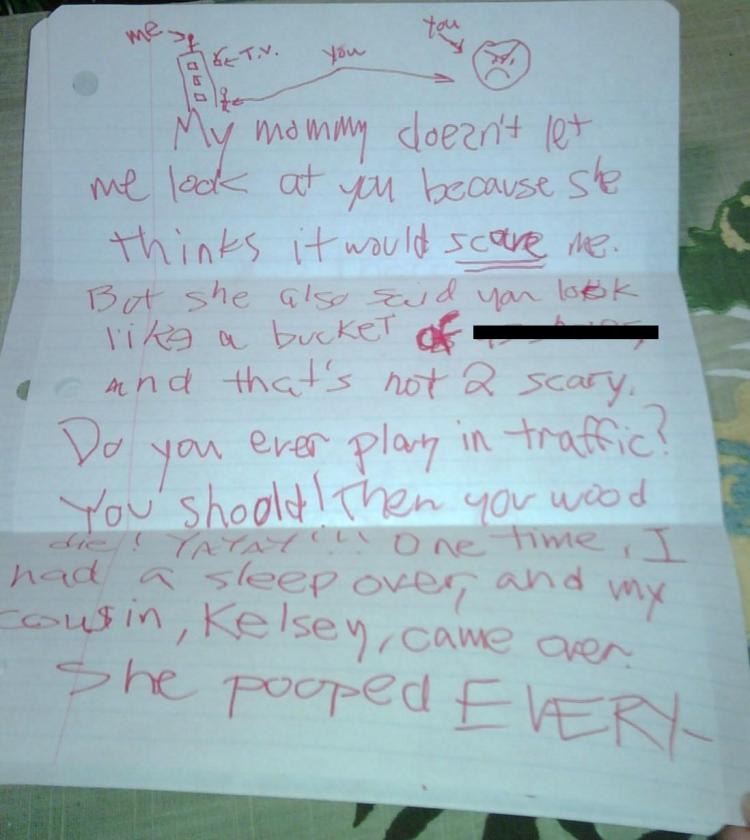 me
T.V.
you
you
My mommy doezn't let
me look at you because she
thinks it would scare me.
But she also said you look
like a bucket of
and that's not 2 scary.
Do you ever play in traffic?
You should! Then you wood
die! YAYAY!!!! One time, I
had a sleep over, and my
cousin, Kelsey, came over.
She pooped EVERY-